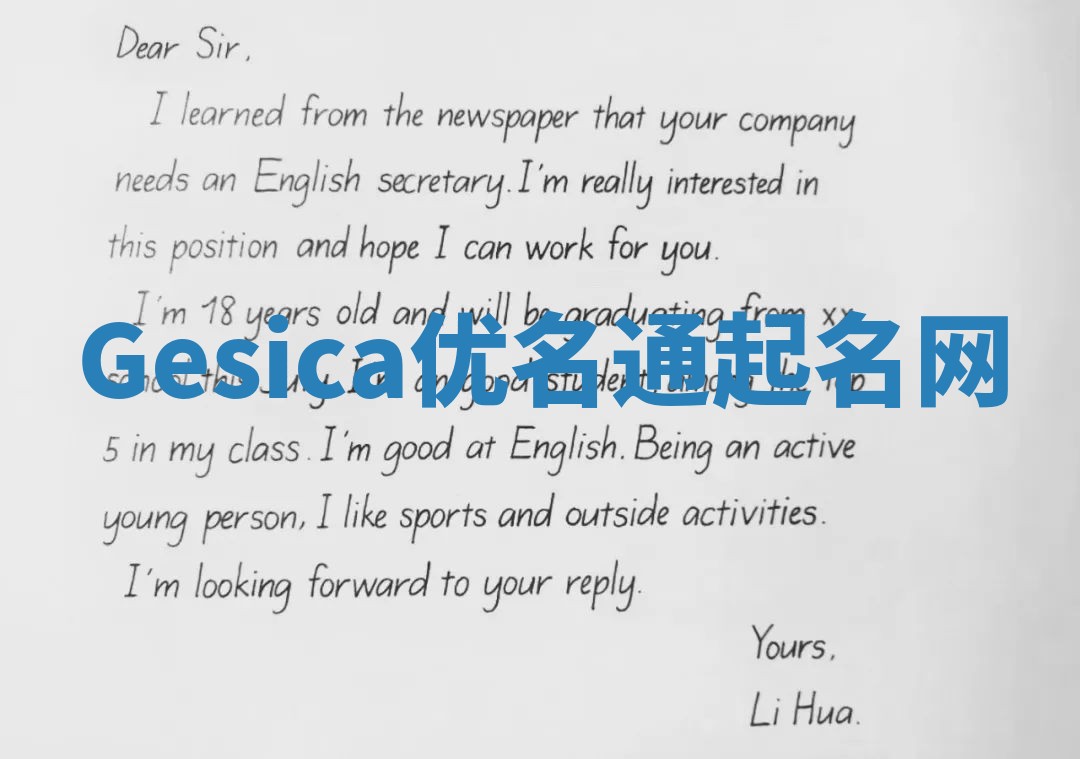 Dear Sir,
I learned from the newspaper that your company
needs an English secretary. I'm really interested in
this position and hope I can work for you.
I'm 18 years old and will be graduating from xx
Gesica优名通起名网
school this July. I'm an good student, among the top
5 in my class. I'm good at English. Being an active
young person, I like sports and outside activities.
I'm looking forward to your reply.
Yours,
Li Hua.